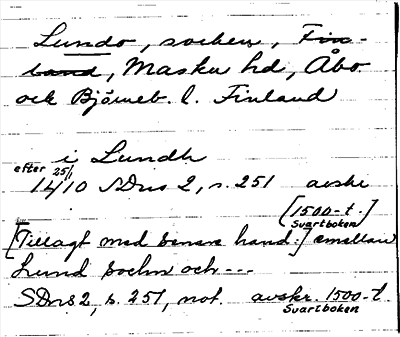 Lundo, socken, Fin-
land, Masku hd, Åbo
och Björneb. l. Finland
i Lundh
efter 25/1 1410 SDns 2, s. 251 avskr
[1500-t.]
Svartboken
[Tillagt med senare hand:] emellan
Lund sochn och ---
SDns 2, s. 251, not. avskr. 1500-t.
Svartboken